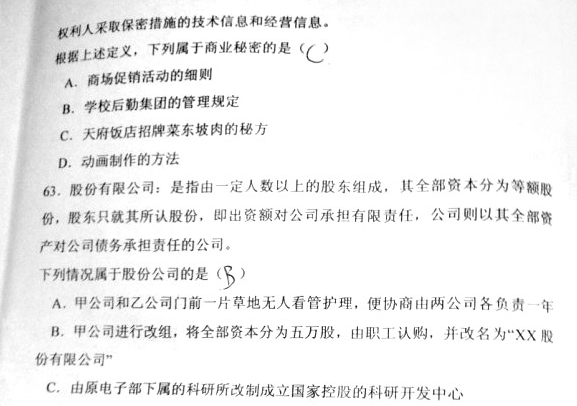 权利人采取保密措施的技术信息和经营信息。
根据上述定义，下列属于商业秘密的是（C）
A．商场促销活动的细则
B．学校后勤集团的管理规定
C．天府饭店招牌菜东坡肉的秘方
D．动画制作的方法
63．股份有限公司：是指由一定人数以上的股东组成，其全部资本分为等额股
份，股东只就其所认股份，即出资额对公司承担有限责任，公司则以其全部资
产对公司债务承担责任的公司。
下列情况属于股份公司的是（B）
A．甲公司和乙公司门前一片草地无人看管护理，便协商由两公司各负责一年
B．甲公司进行改组，将全部资本分为五万股，由职工认购，并改名为“XX 股
份有限公司”
C．由原电子部下属的科研所改制成立国家控股的科研开发中心